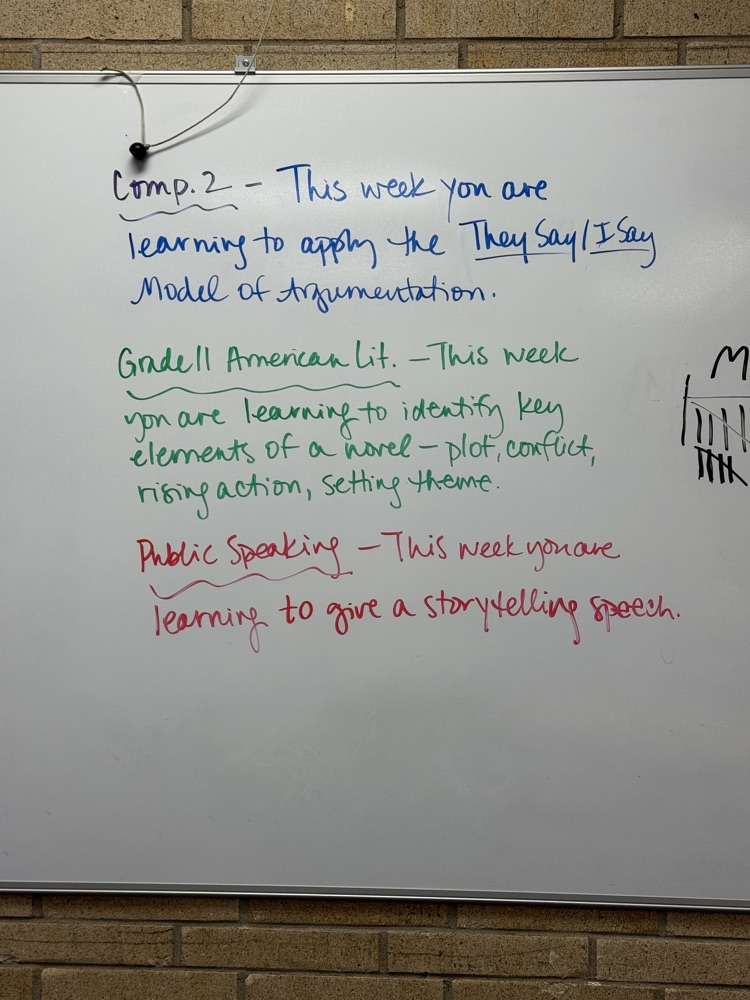 Comp. 2 - This week you are
learning to apply the They Say/I Say
Model of Argumentation.
Grade 11 American Lit. - This week
you are learning to identify key
elements of a novel - plot, conflict,
rising action, setting theme.
Public Speaking - This week you are
learning to give a storytelling speech.
M